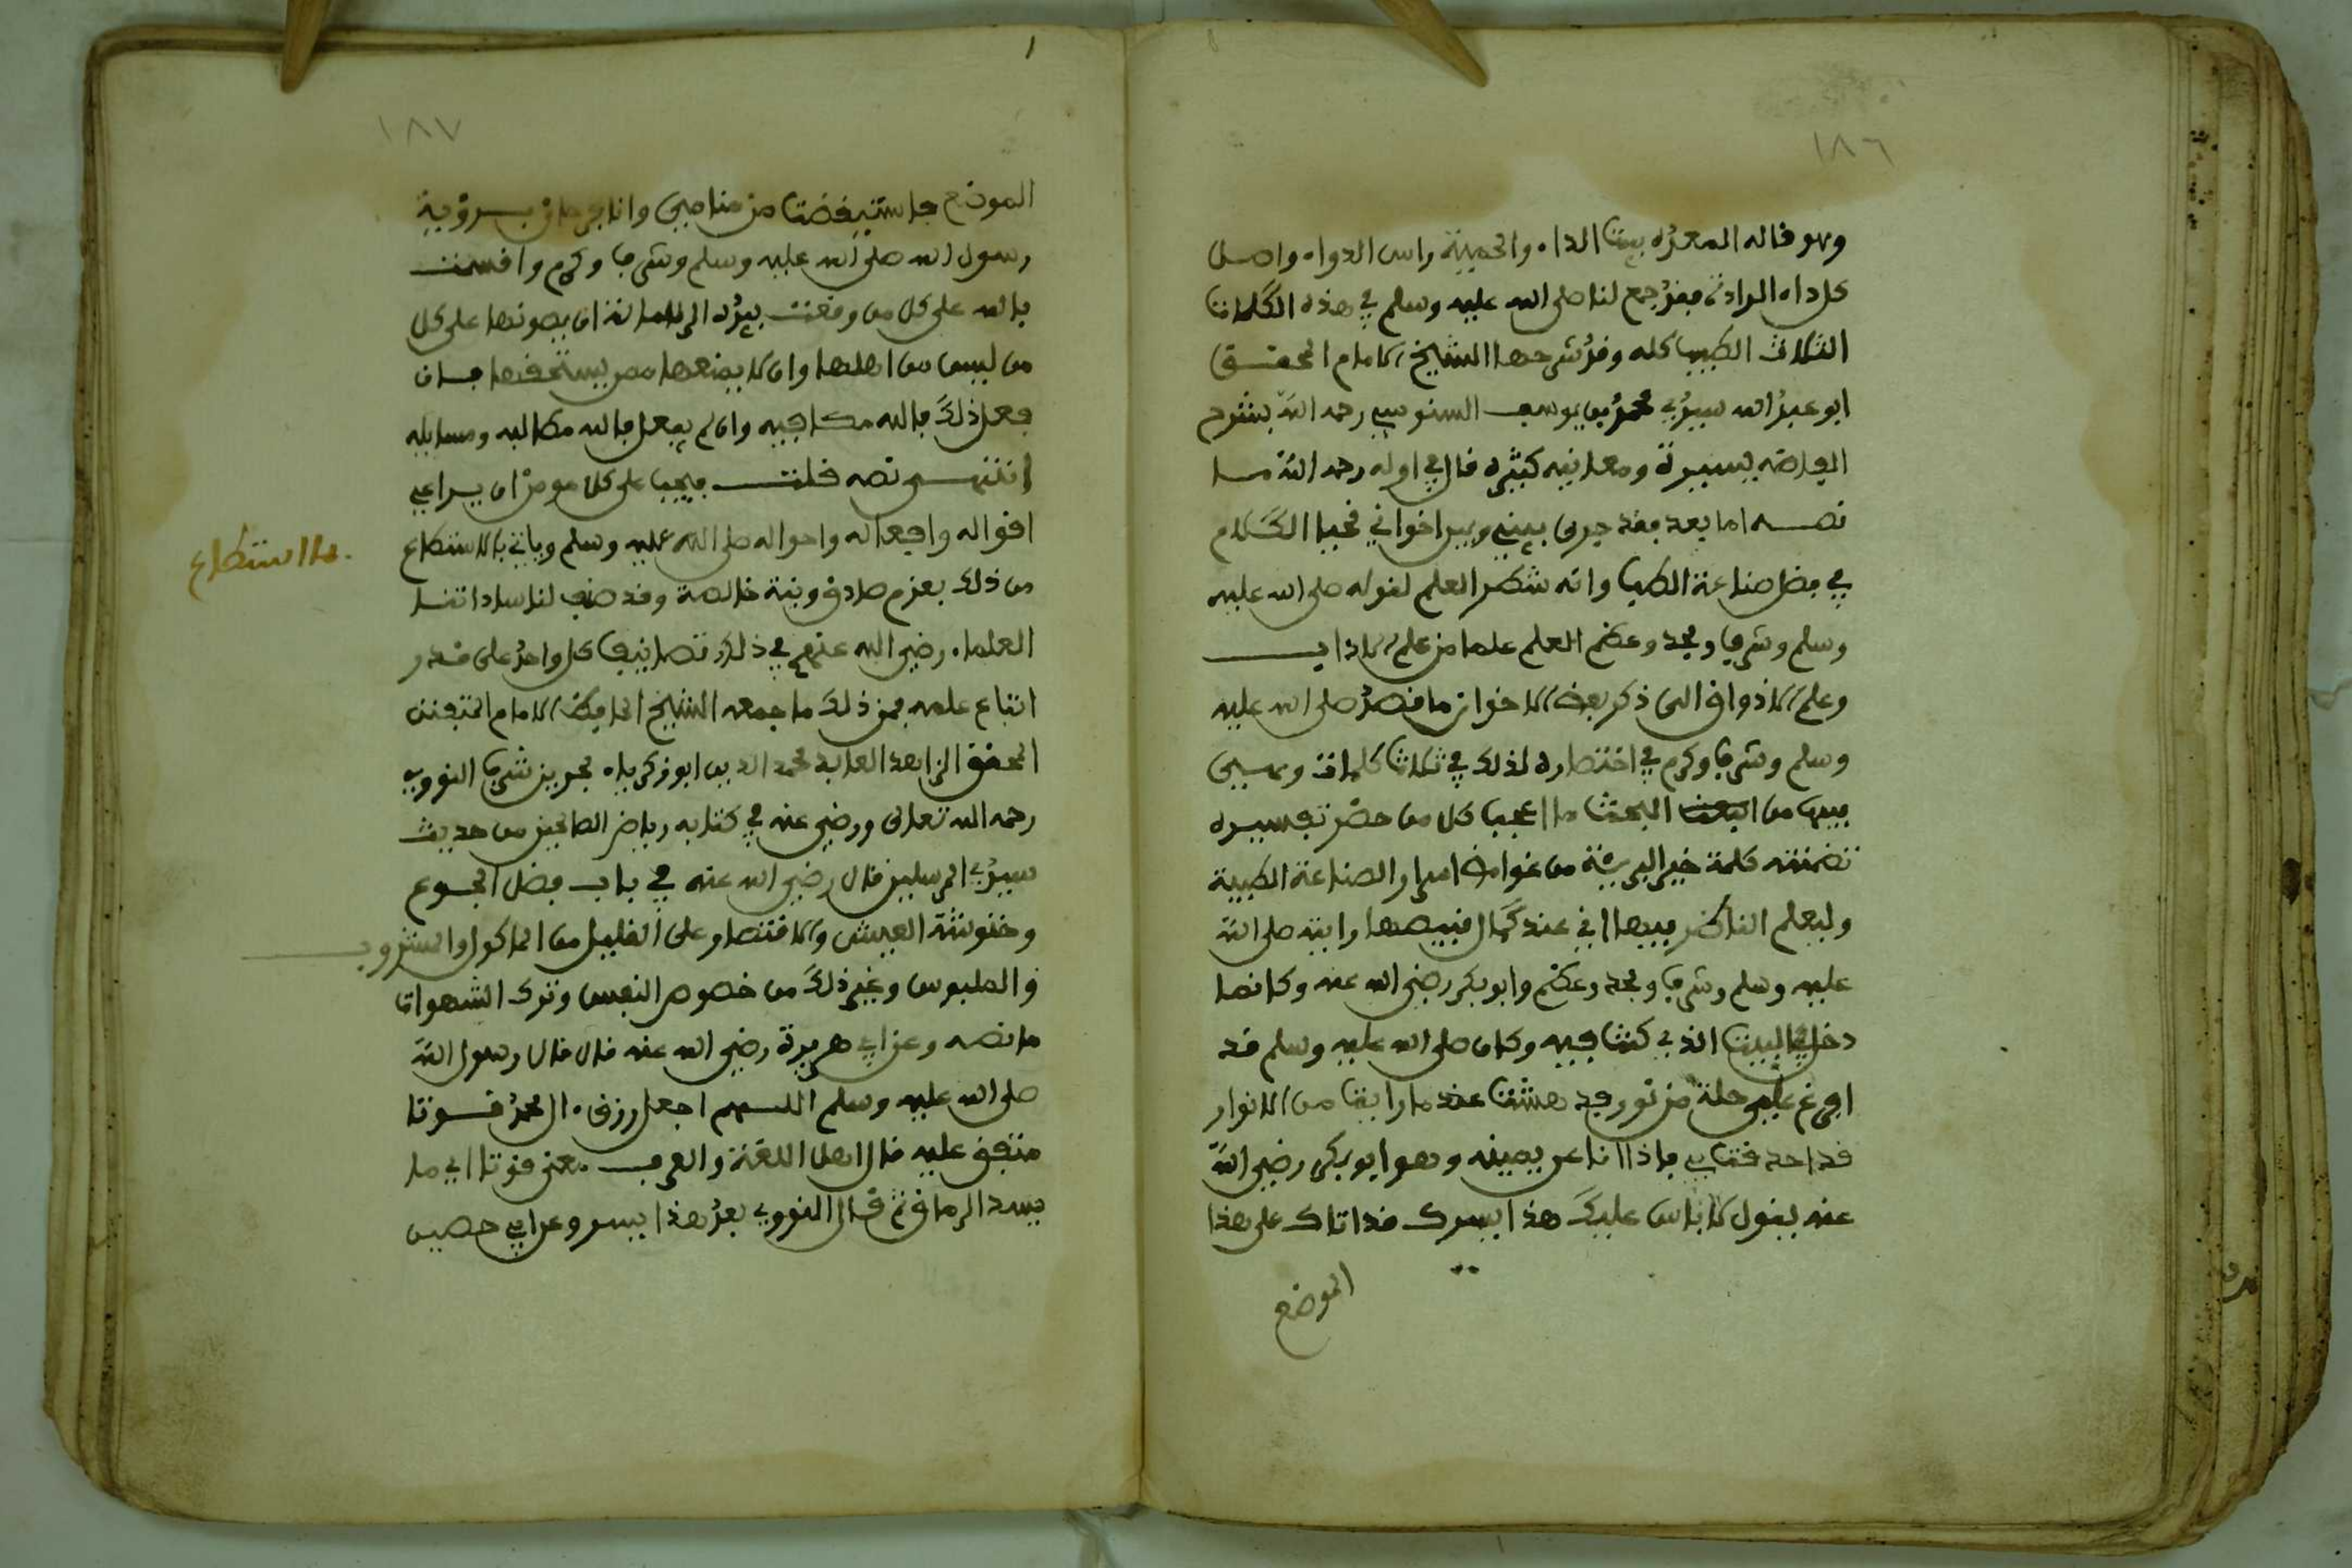 ١٨٦
وهو قاله المعدة بيت الداء والحمية راس الدواء واصل
كل داء البردة فقد جمع لنا صلى الله عليه وسلم في هذه الكلمات
الثلاث الطب كله وقد شرحها الشيخ الامام المحقق
ابو عبد الله سيدي محمد بن يوسف السنوسي رحمه الله بشرح
الفاظه يسيرة ومعانيه كثيرة قال في اوله رحمه الله ما
نصه اما بعد فقد جرى بيني وبين اخواني محب الكلام
في فضل صناعة الطب وانه شطر العلم لقوله صلى الله عليه
وسلم وشرف ومجد وعظم العلم علمان علم الاداب
وعلم الاذواق الى ذكر بعض الاخوان ما قصد صلى الله عليه
وسلم وشرف وكرم في اختصاره لذلك في ثلاث كلمات ومسى
فيها من البحث ما اعجب كل من حضر تفسيره
تضمنته كلمة خير البرية من غوامض اسرار الصناعة الطبية
وليعلم الناظر فيها اني عند كمال قبيصها رايته صلى الله
عليه وسلم وشرف ومجد وعظم وابو بكر رضي الله عنه وكانما
دخل في البيت الذي كنت فيه وكان صلى الله عليه وسلم قد
افرغ عليه حلة من نور فدهشت عند ما رايت من الانوار
قد احدقت بي فاذا انا عن يمينه وهو ابو بكر رضي الله
عنه يقول لا باس عليك هذا يسرك قد اتاك على هذا
الموضع
١
١٨٧
الموضع فاستيقضت من منامي وانا فرحان برؤية
رسول الله صلى الله عليه وسلم وشرف وكرم واقسمت
بالله على كل من وقعت بيده الرسالة ان يصونها على كل
من ليس من اهلها وان لا يمنعها ممن يستحقها فان
فعل ذلك فالله مكافيه وان لم يفعل فالله مطالبه ومسايله
انتهى نصه قلت فيجب على كل مومن ان يراعي
اقواله وافعاله واحواله صلى الله عليه وسلم وياتي بالاستطاع
ما استطاع
من ذلك بعزم صادق ونية خالصة وقد صنف لنا ساداتنا
العلماء رضي الله عنهم في ذلك تصانيف كل واحد على قدر
اتباع علمه فمن ذلك ما جمعه الشيخ الحافظ الامام المتفنن
المحقق الزاهد العابد محمد الدين ابو زكرياء يحيى بن شرف النووي
رحمه الله تعالى ورضي عنه في كتابه رياض الصالحين من حديث
سيد المرسلين قال رضي الله عنه في باب فضل الجوع
وخشونة العيش والاقتصار على القليل من الماكول والمشروب
والملبوس وغير ذلك من خصوص النفس وترك الشهوات
ما نصه وعن ابي هريرة رضي الله عنه قال قال رسول الله
صلى الله عليه وسلم اللهم اجعل رزق ال محمد قوتا
متفق عليه قال اهل اللغة والعرب معنى قوتا اي ما
يسد الرمق ثم قال النووي بعد هذا بيسير وعن ابي حصين